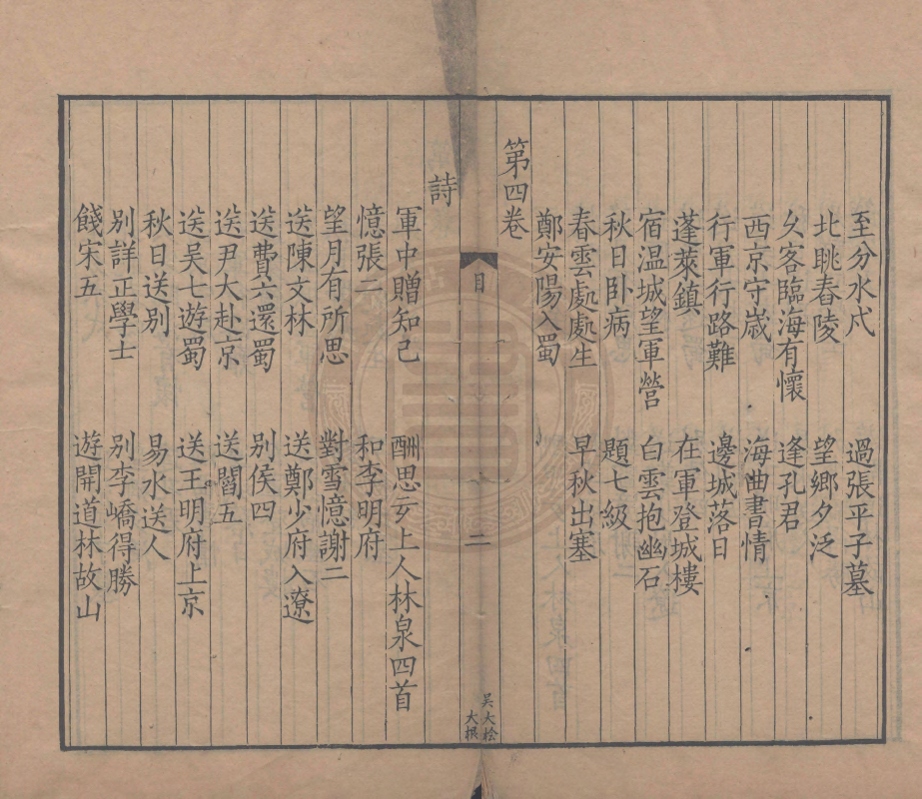 至分水戍　過張平子墓
北眺舂陵　望鄉夕泛
久客臨海有懷　逢孔君
西京守歲　海曲書情
行軍行路難　邊城落日
蓬萊鎮　在軍登城樓
宿温城望軍營　白雲抱幽石
秋日卧病　題七級
春雲處處生　早秋出塞
鄭安陽入蜀
第四卷
目　二
吴大桧
大棋
詩
軍中贈知己　酬思玄上人林泉四首
憶張二　和李明府
望月有所思　對雪憶謝二
送陳文林　送鄭少府入遼
送費六還蜀　别侯四
送尹大赴京　送閻五
送吴七遊蜀　送王明府上京
秋日送别　易水送人
别詳正學士　别李嶠得勝
餞宋五　遊開道林故山